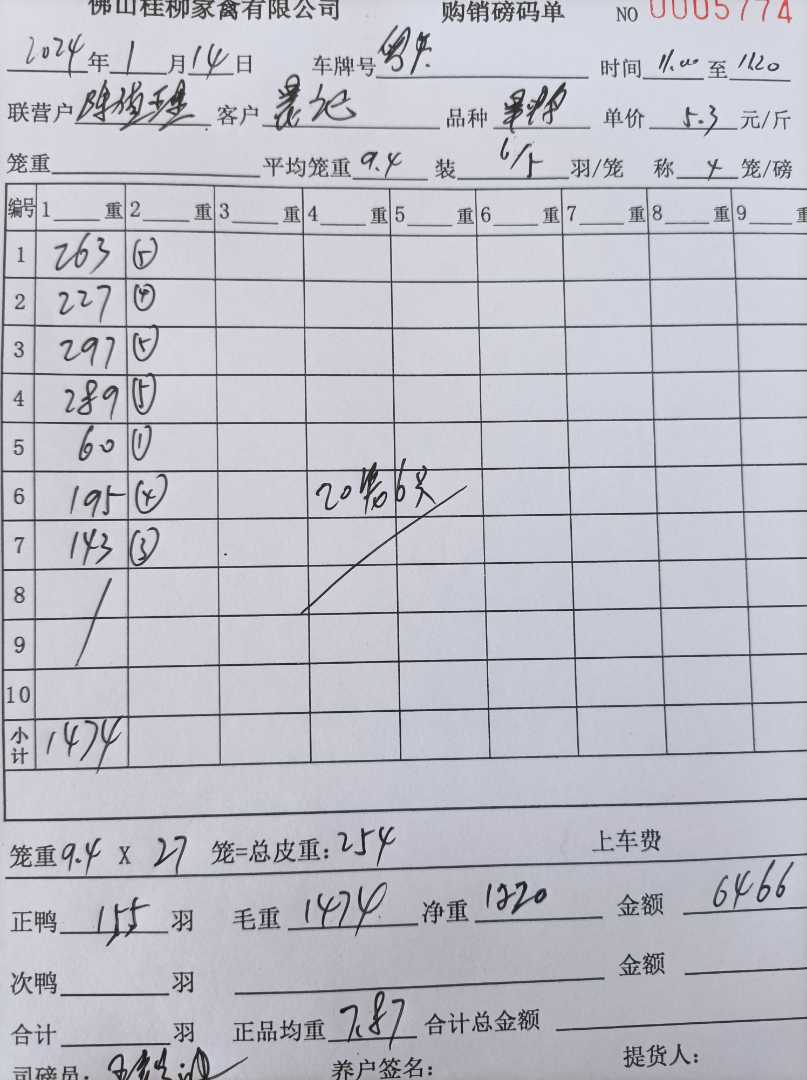 佛山桂柳家禽有限公司 购销磅码单 NO 0005774
2024年1月14日 车牌号 时间 11.00 至 1120
联营户 陈 客户 记 品种 单价 5.3 元/斤
笼重 平均笼重 9.4 装 6/5 羽/笼 称 4 笼/磅
编号 1 重 2 重 3 重 4 重 5 重 6 重 7 重 8 重 9 重
1 263 ⑤
2 227 ④
3 297 ⑤
4 289 ⑤
5 60 ①
6 195 ④ 20 6只
7 143 ③
8
9
10
小计 1474
笼重 9.4 X 27 笼=总皮重: 254 上车费
正鸭 155 羽 毛重 1474 净重 1220 金额 6466
次鸭 羽 金额
合计 羽 正品均重 7.87 合计总金额
司磅员: 养户签名: 提货人: